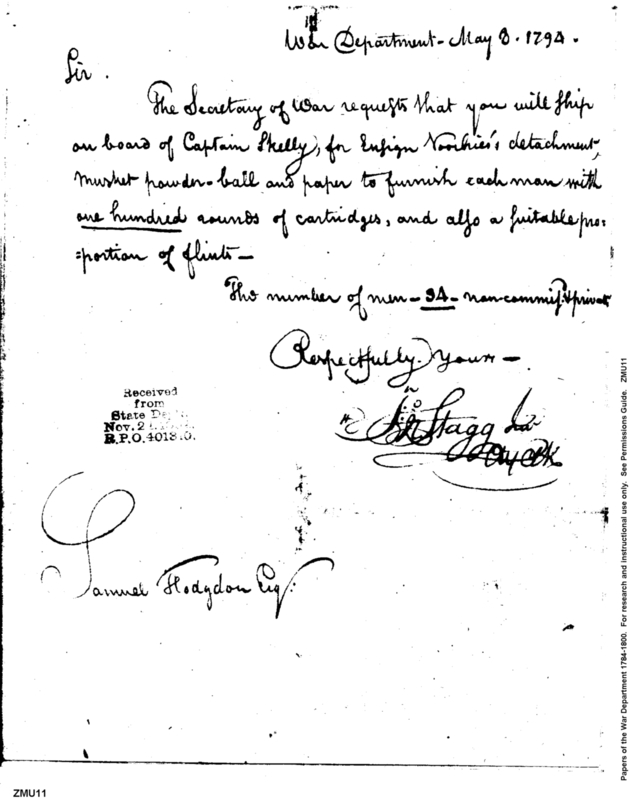 War Department - May 8. 1794.
Sir.
The Secretary of War requests that you will ship
on board of Captain Skelly, for Ensign Voorhies's detachment,
musket powder - ball and paper to furnish each man with
one hundred rounds of cartridges, and also a suitable pro=
=portion of flints -
The number of men - 34 - non-commiss. & privat
Respectfully Yours -
Jn Stagg Jur
Received
from
State
Nov. 2
B.P.O. 40130.
Samuel Hodgdon Esq
Papers of the War Department 1784-1800. For research and instructional use only. See Permissions Guide. ZMU11
ZMU11